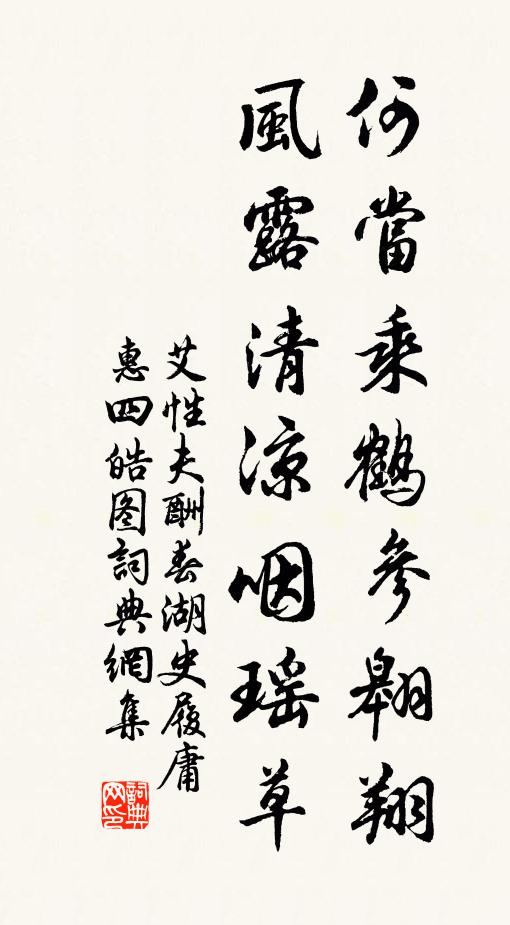 何當乘鶴參翱翔
風露清涼咽瑶草
艾性夫酬春湖史履庸
惠四皓图詞典網集
詞典网印